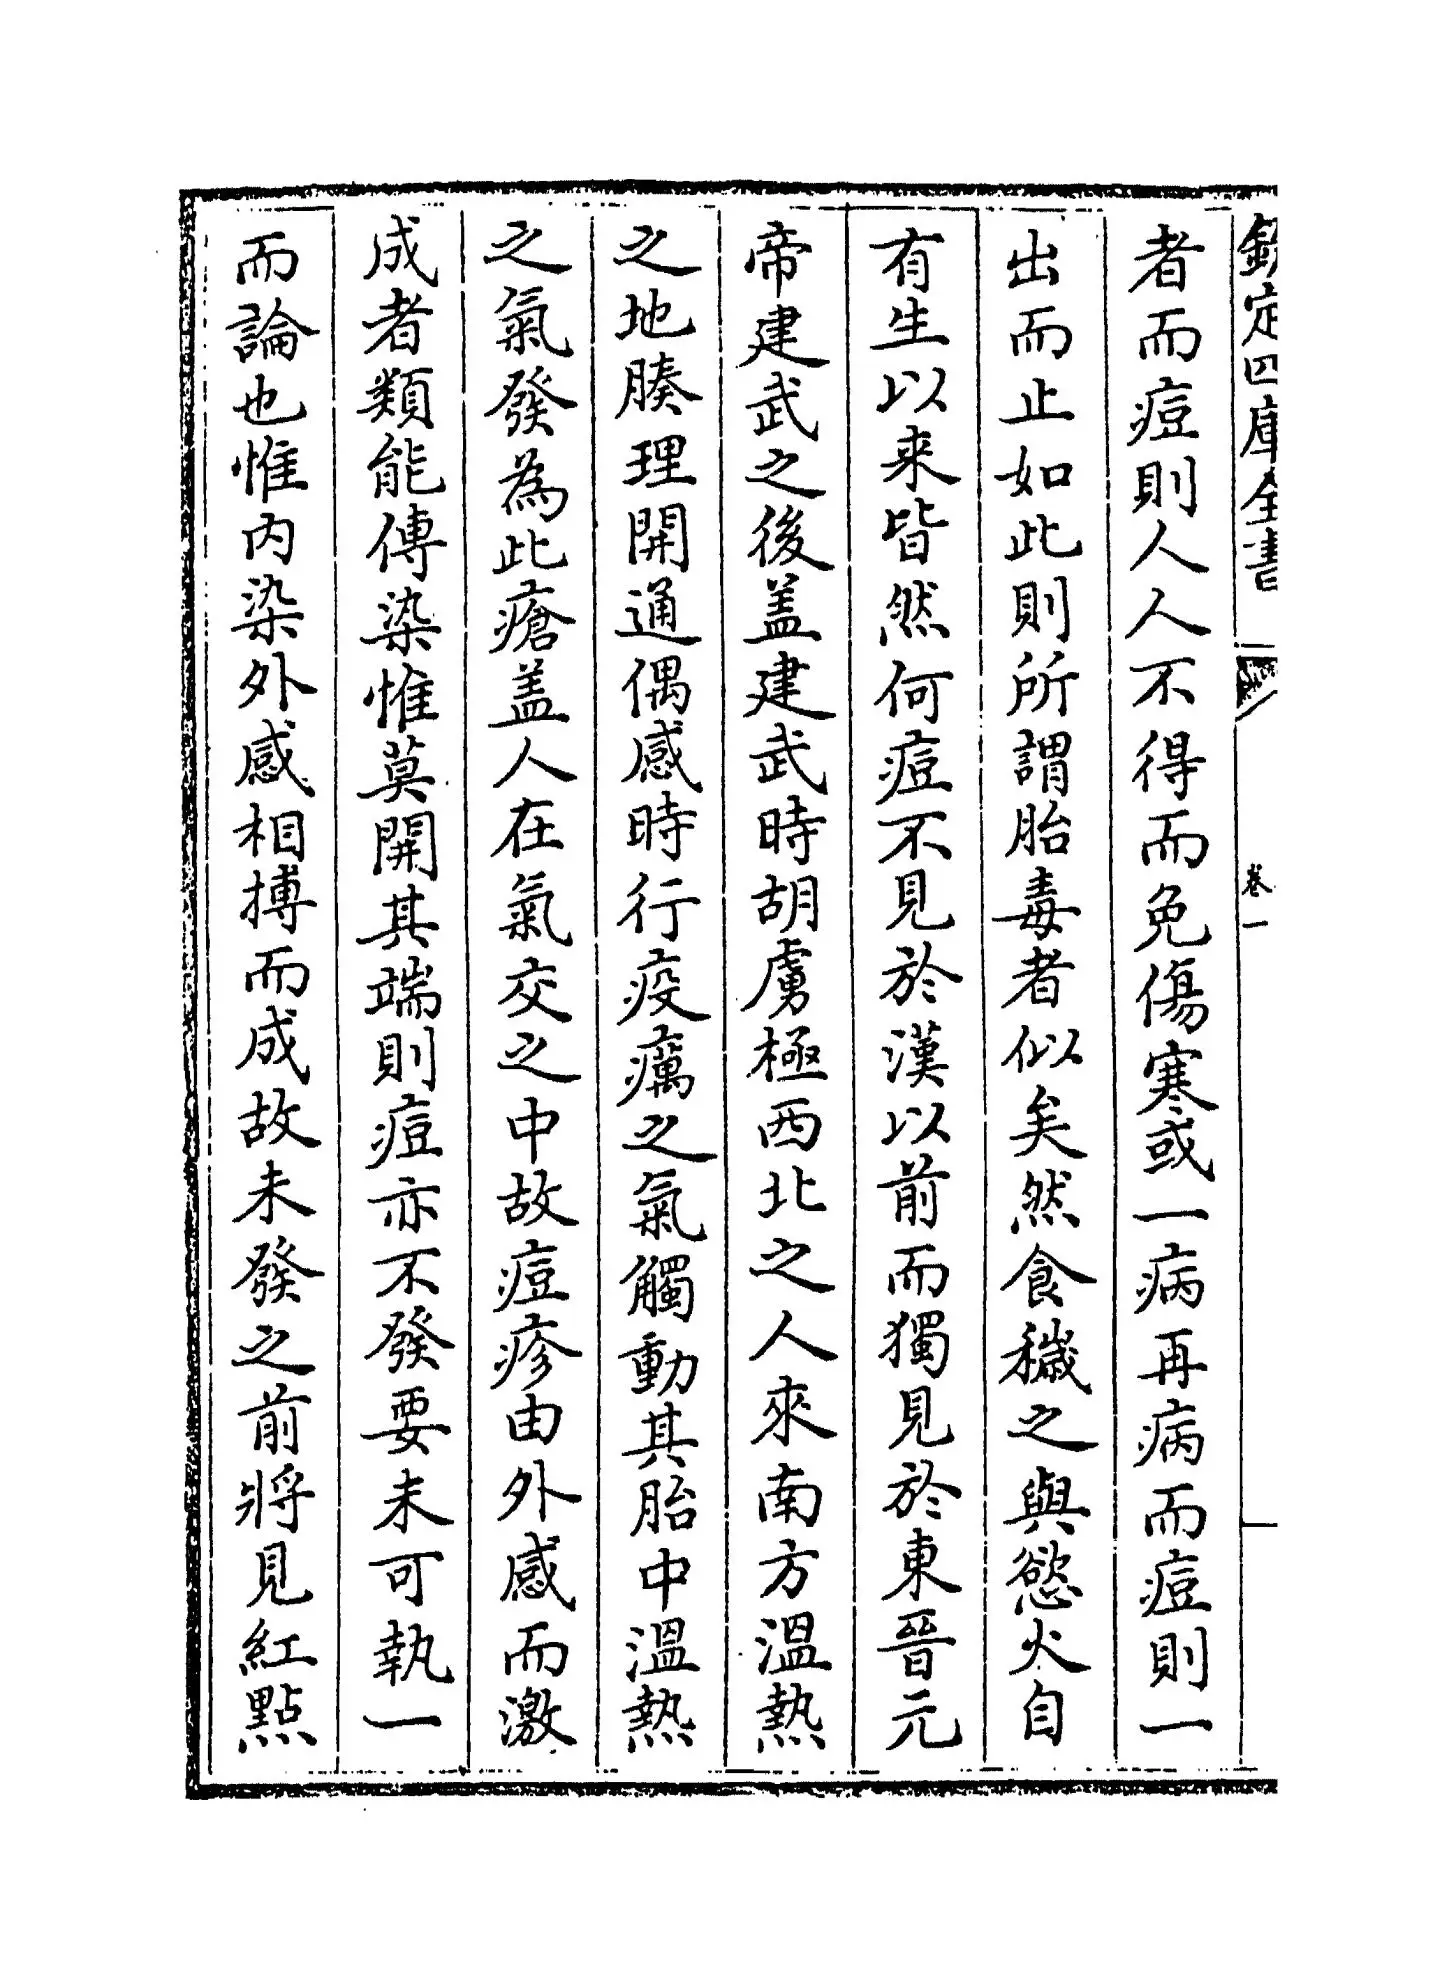 欽定四庫全書
卷一
者而痘則人人不得而免傷寒或一病再病而痘則一
出而止如此則所謂胎毒者似矣然食穢之與慾火自
有生以来皆然何痘不見於漢以前而獨見於東晉元
帝建武之後盖建武時胡虜極西北之人來南方溫熱
之地腠理開通偶感時行疫癘之氣觸動其胎中溫熱
之氣發為此瘡盖人在氣交之中故痘疹由外感而激
成者類能傳染惟莫開其端則痘亦不發要未可執一
而論也惟内染外感相搏而成故未發之前將見紅點